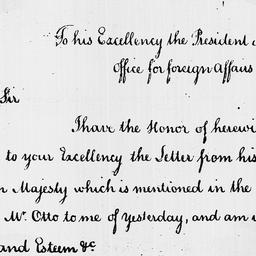 To his Excellency the President
Office for foreign Affairs
Sir
I have the Honor of
to your Excellency the Letter from his
Majesty which is mentioned in the
Mr. Otto to me of yesterday, and am
and Esteem &c